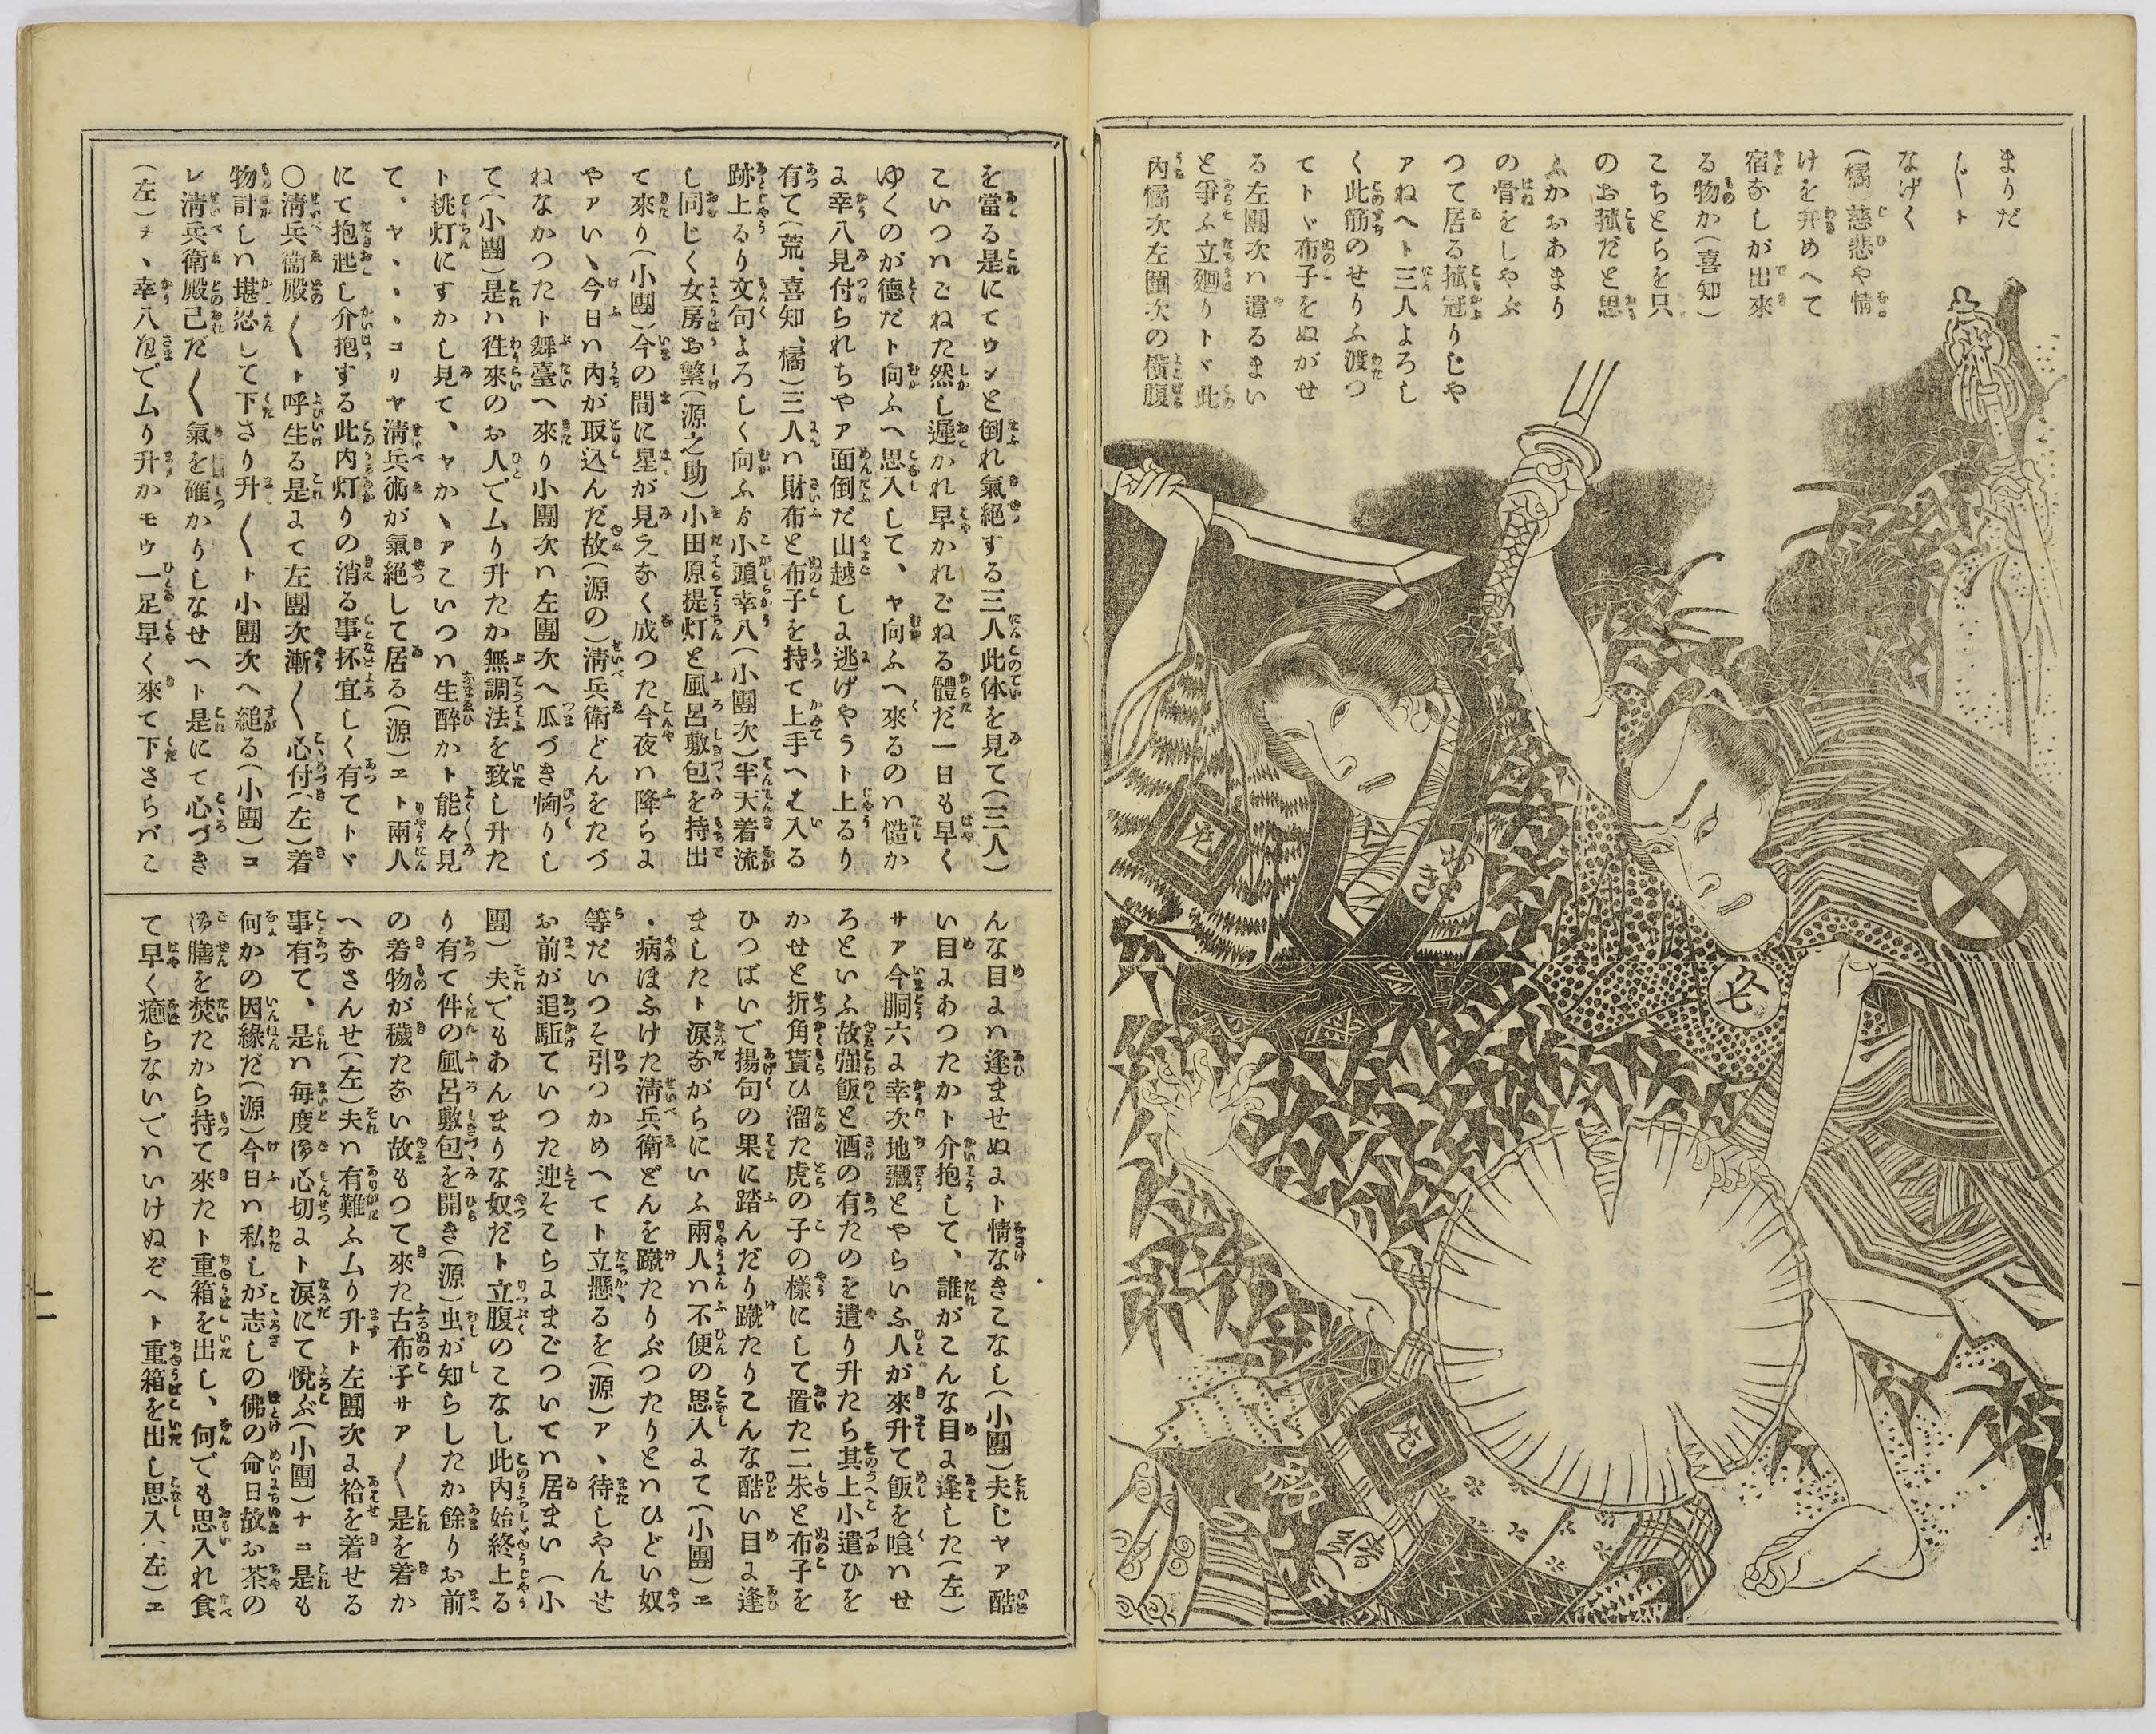 まりだ
〴〵ト
なげく
(橘)慈悲や情
けを弁めへて
宿なしが出來
る物か(喜知)
こちとらを只
のお菰だと思
ふかおあまり
の骨をしやぶ
つて居る菰冠りじや
アねへト三人よろし
く此筋のせりふ渡つ
てトヾ布子をぬがせ
る左團次ハ遣るまい
と爭ふ立廻りトヾ此
内橘次左團次の横腹
を當る是にてウンと倒れ氣絶する三人此体を見て(三人)
こいつハごねた然し遲かれ早かれごねる體だ一日も早く
ゆくのが德だト向ふへ思入して、ヤ向ふへ來るのハ慥か
に幸八見付られちやア面倒だ山越しに逃げやうト上るり
有て(荒、喜知、橘)三人ハ財布と布子を持て上手へ這入る
跡上るり文句よろしく向ふゟ小頭幸八(小團次)半天着流
し同じく女房お繁(源之助)小田原提灯と風呂敷包を持出
て來り(小團)今の間に星が見えなく成つた今夜ハ降らに
やアいヽ今日ハ内が取込んだ故(源の)淸兵衛どんをたづ
ねなかつたト舞臺へ來り小團次ハ左團次へ瓜づき恟りし
て(小團)是ハ徃來のお人でムり升たか無調法を致し升た
ト桃灯にすかし見て、ヤかヽアこいつハ生醉かト能々見
て、ヤヽヽヽコリヤ淸兵衛が氣絶して居る(源)ヱト兩人
にて抱起し介抱する此内灯りの消る事抔宜しく有てトヾ
〇淸兵衞殿〳〵ト呼生る是にて左團次漸〳〵心付(左)着
物計しハ堪忍して下さり升〳〵ト小團次へ縋る(小團)コ
レ淸兵衛殿己だ〳〵氣を確かりしなせへト是にて心づき
(左)ヲヽ幸八さまでムり升かモウ一足早く來て下さらバこ
んな目にハ逢ませぬにト情なきこなし(小團)夫じヤア酷
い目にあつたかト介抱して、誰がこんな目に逢した(左)
サア今胴六に幸次地藏とやらいふ人が來升て飯を喰ハせ
ろといふ故强飯と酒の有たのを遣り升たら其上小遣ひを
かせと折角貰ひ溜た虎の子の樣にして置た二朱と布子を
ひつぱいで揚句の果に踏んだり蹴たりこんな酷い目に逢
ましたト涙ながらにいふ兩人ハ不便の思入にて(小團)ヱ
ヽ病ほふけた淸兵衛どんを蹴たりぶつたりとハひどい奴
等だいつそ引つかめへてト立懸るを(源)アヽ待しやんせ
お前が追駈ていつた迚そこらにまごついてハ居まい(小
團)夫でもあんまりな奴だト立腹のこなし此内始終上る
り有て件の風呂敷包を開き(源)虫が知らしたか餘りお前
の着物が穢たない故もつて來た古布子サア〳〵是を着か
へなさんせ(左)夫ハ有難ふムり升ト左團次に袷を着せる
事有て、是ハ毎度御心切にト涙にて悅ぶ(小團)ナニ是も
何かの因緣だ(源)今日ハ私しが志しの佛の命日故お茶の
御膳を焚たから持て來たト重箱を出し、何でも思入れ食
て早く癒らないでハいけぬぞへト重箱を出し思入(左)ヱ
二